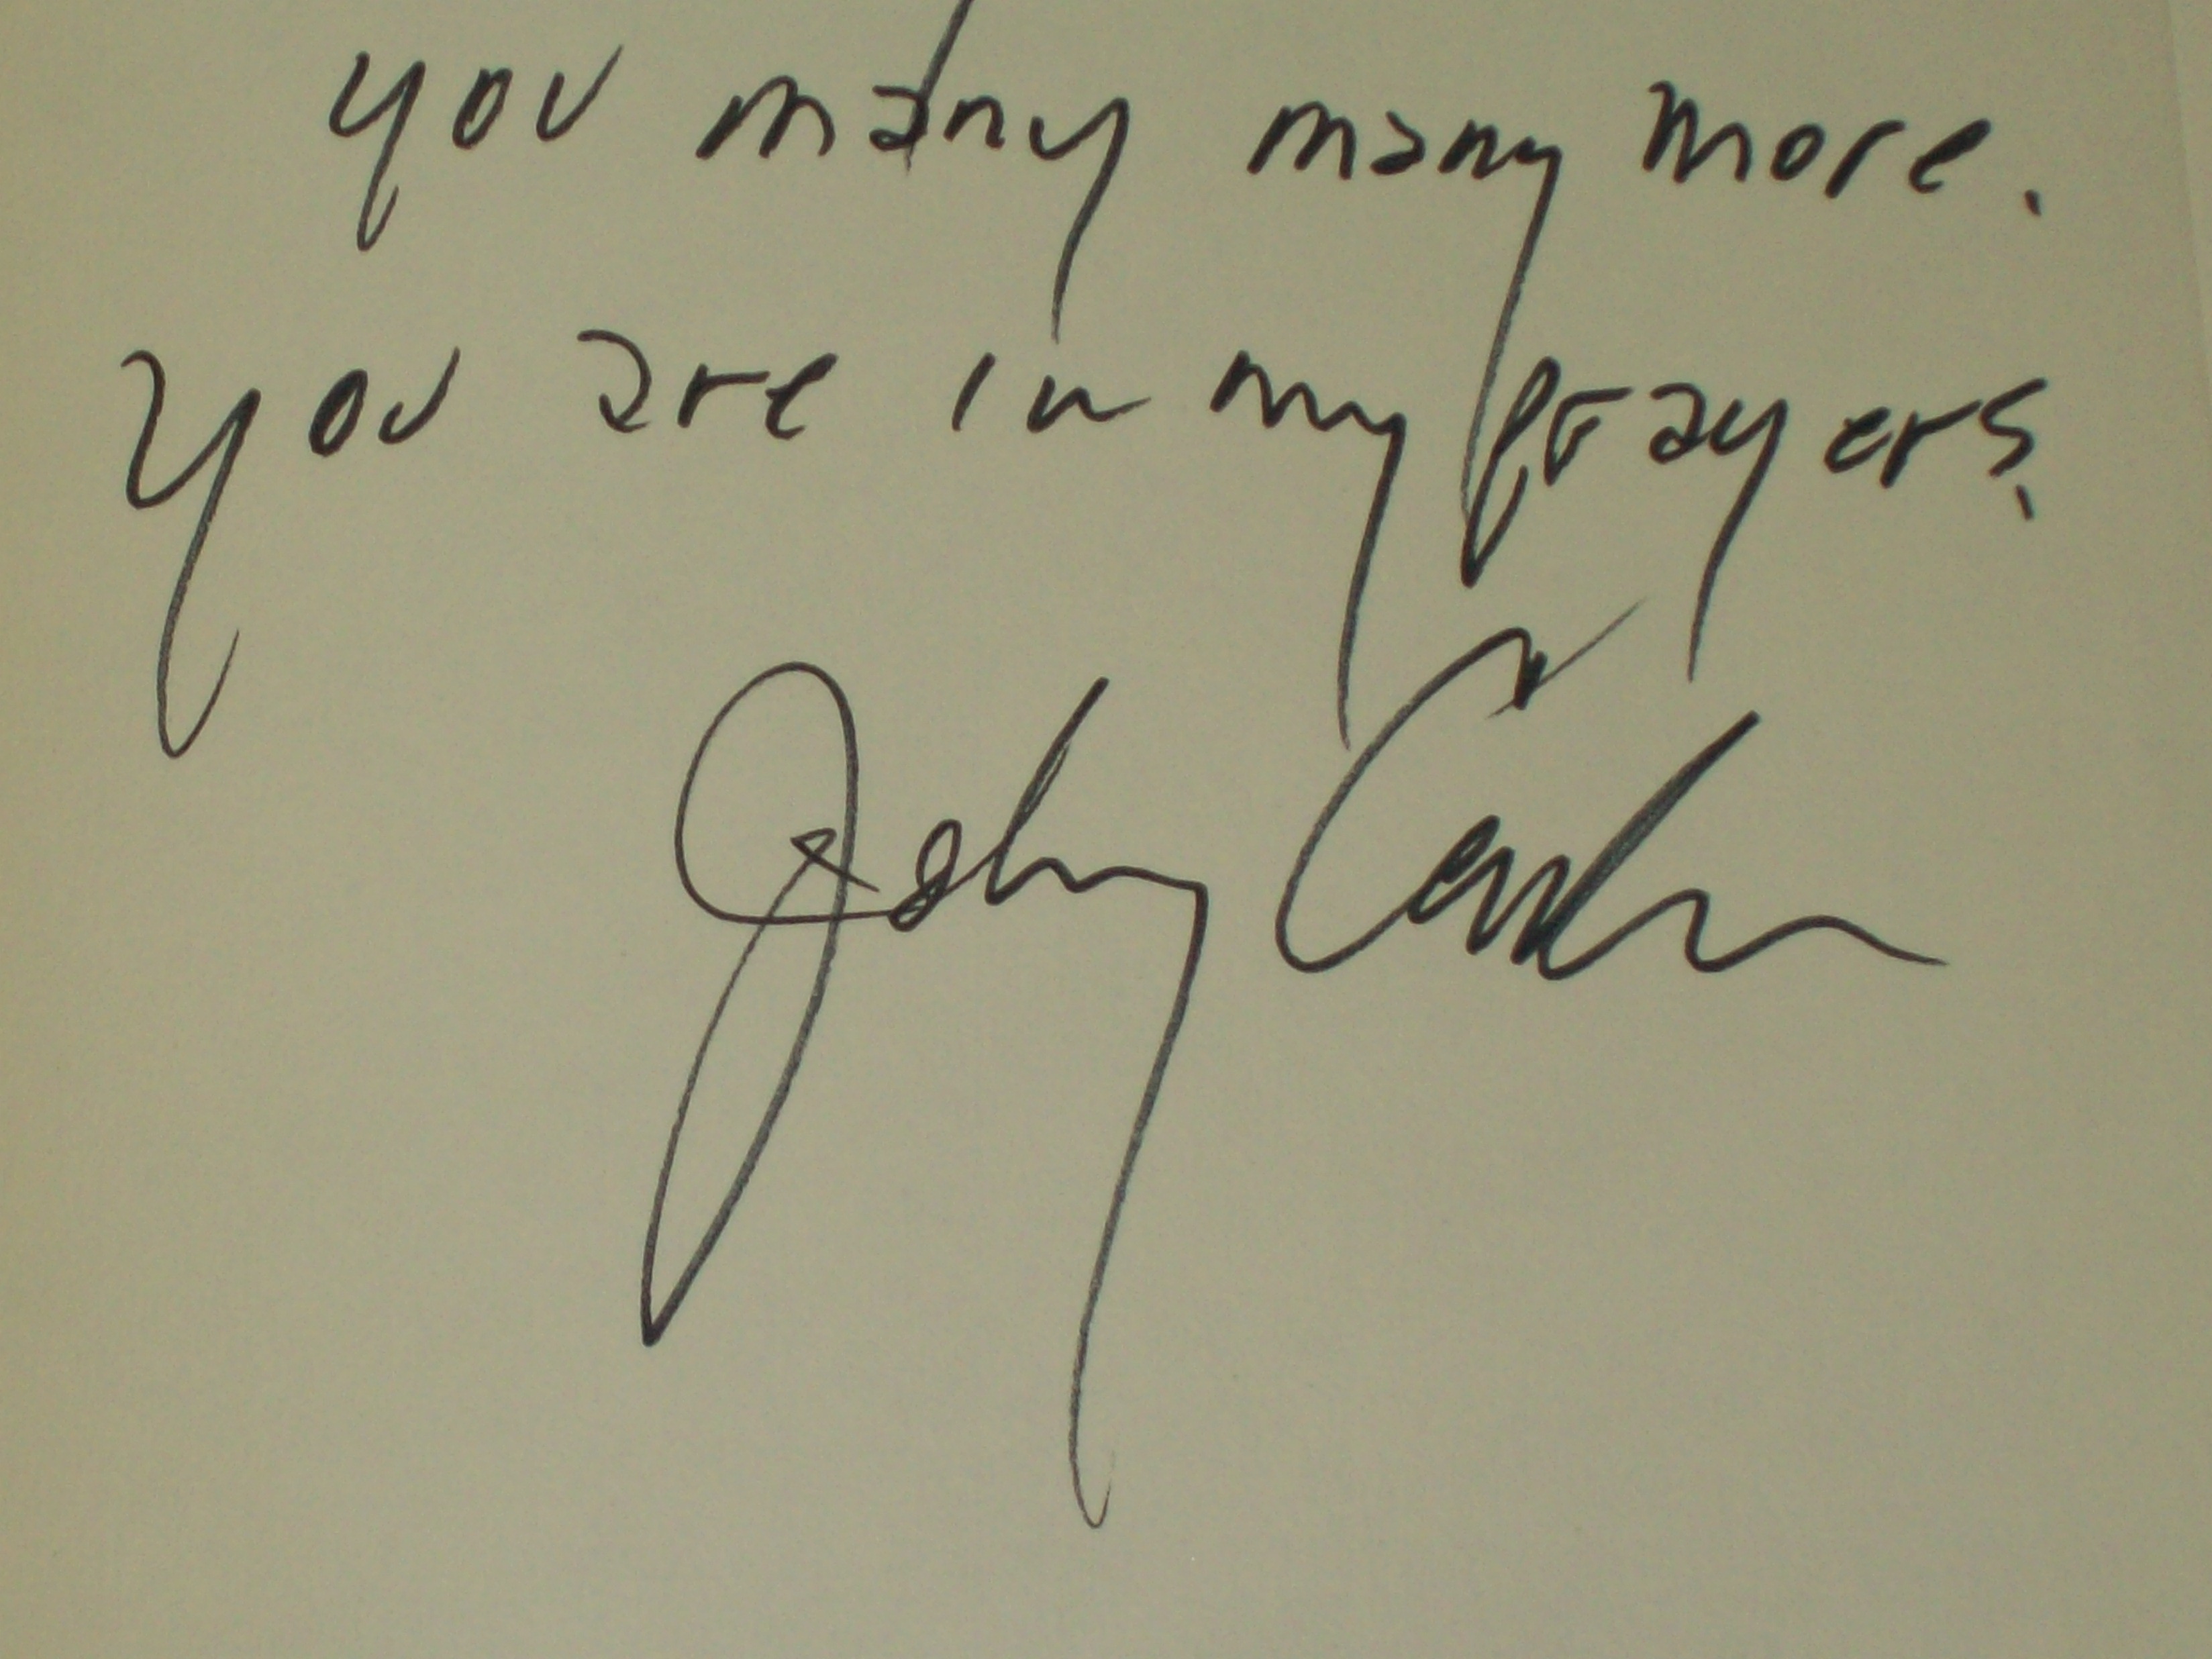 you many many more.
you are in my prayers.
Johnny Cash